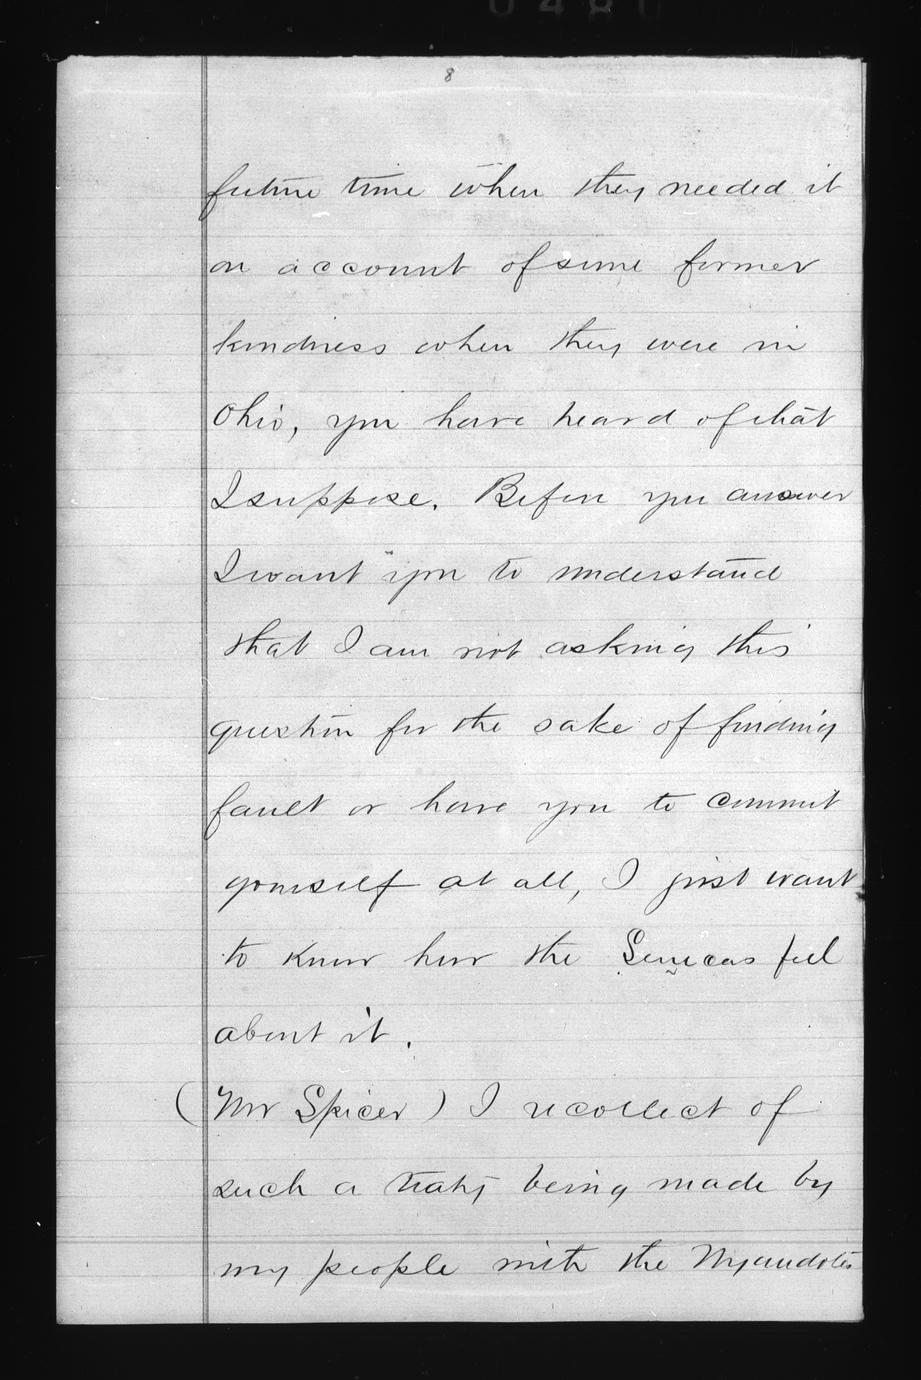 0480
8
future time when they needed it
on account of some former
kindness when they were in
Ohio, you have heard of that
I suppose. Before you answer
I want you to understand
that I am not asking this
question for the sake of finding
fault or have you to commit
yourself at all, I just want
to know how the Senecas feel
about it.
(Mr Spicer) I recollect of
such a treaty being made by
my people with the Wyandotes